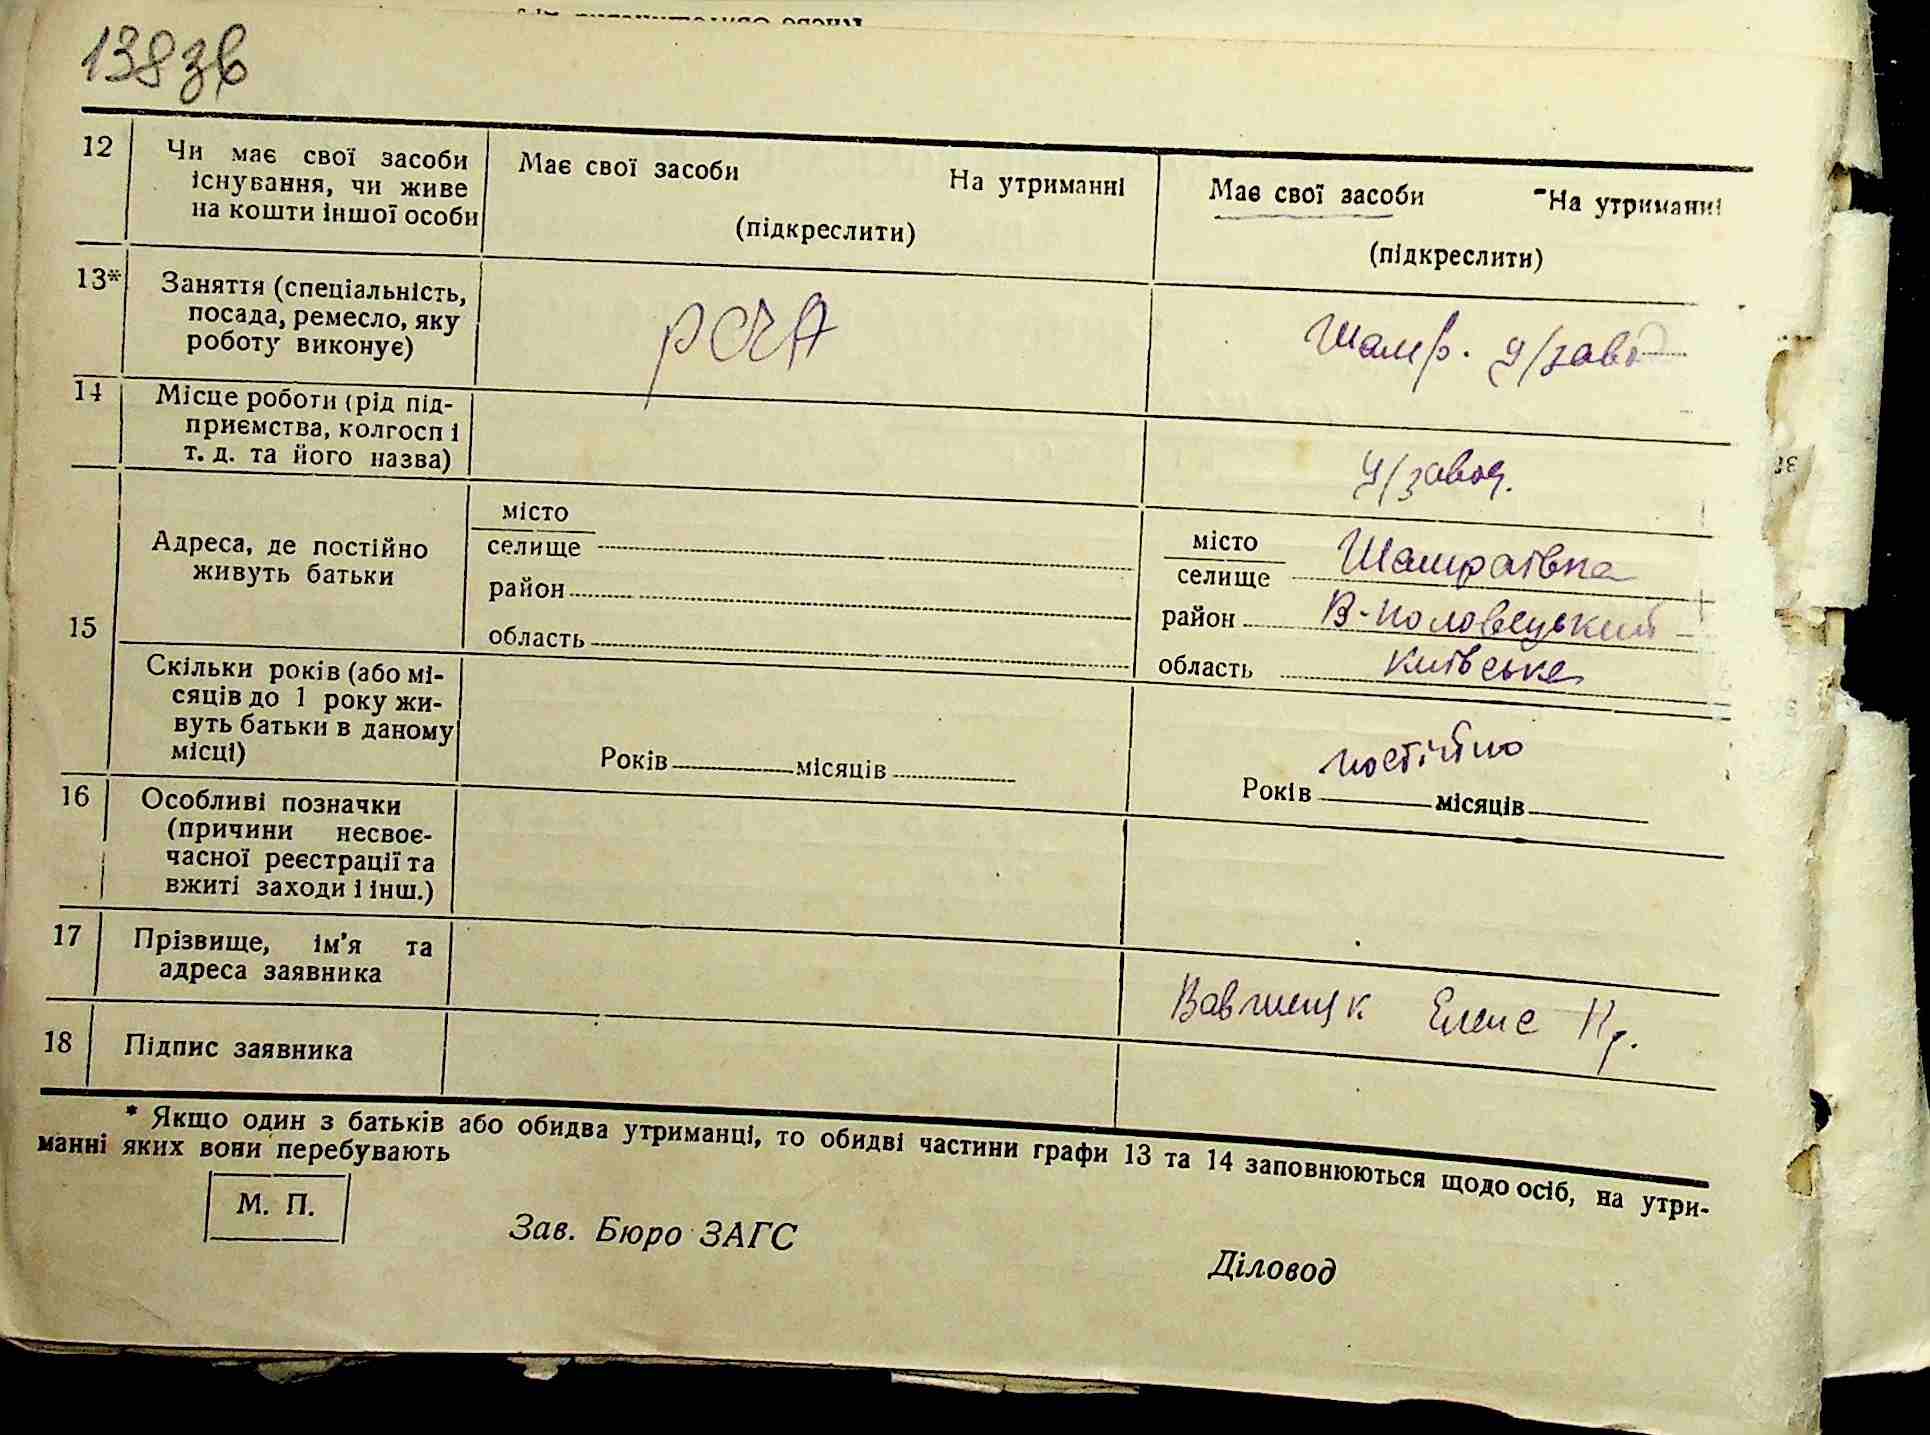 138 зв
12 Чи має свої засоби
існування, чи живе
на кошти іншої особи
Має свої засоби На утриманні
(підкреслити)
Має свої засоби На утриманні
(підкреслити)
13* Заняття (спеціальність,
посада, ремесло, яку
роботу виконує)
РСЧА
Шамр. ц/завод
14 Місце роботи (рід під-
приємства, колгосп і
т. д. та його назва)
ц/завод.
15
Адреса, де постійно
живуть батьки
місто
селище
район
область
місто
селище Шамраївка
район В-Половецький
область Київська
Скільки років (або мі-
сяців до 1 року жи-
вуть батьки в даному
місці)
Років місяців
постійно
Років місяців
16 Особливі позначки
(причини несвоє-
часної реєстрації та
вжиті заходи і інш.)
17 Прізвище, ім'я та
адреса заявника
Елена
18 Підпис заявника
* Якщо один з батьків або обидва утриманці, то обидві частини графи 13 та 14 заповнюються щодо осіб, на утри-
манні яких вони перебувають
М. П.
Зав. Бюро ЗАГС
Діловод